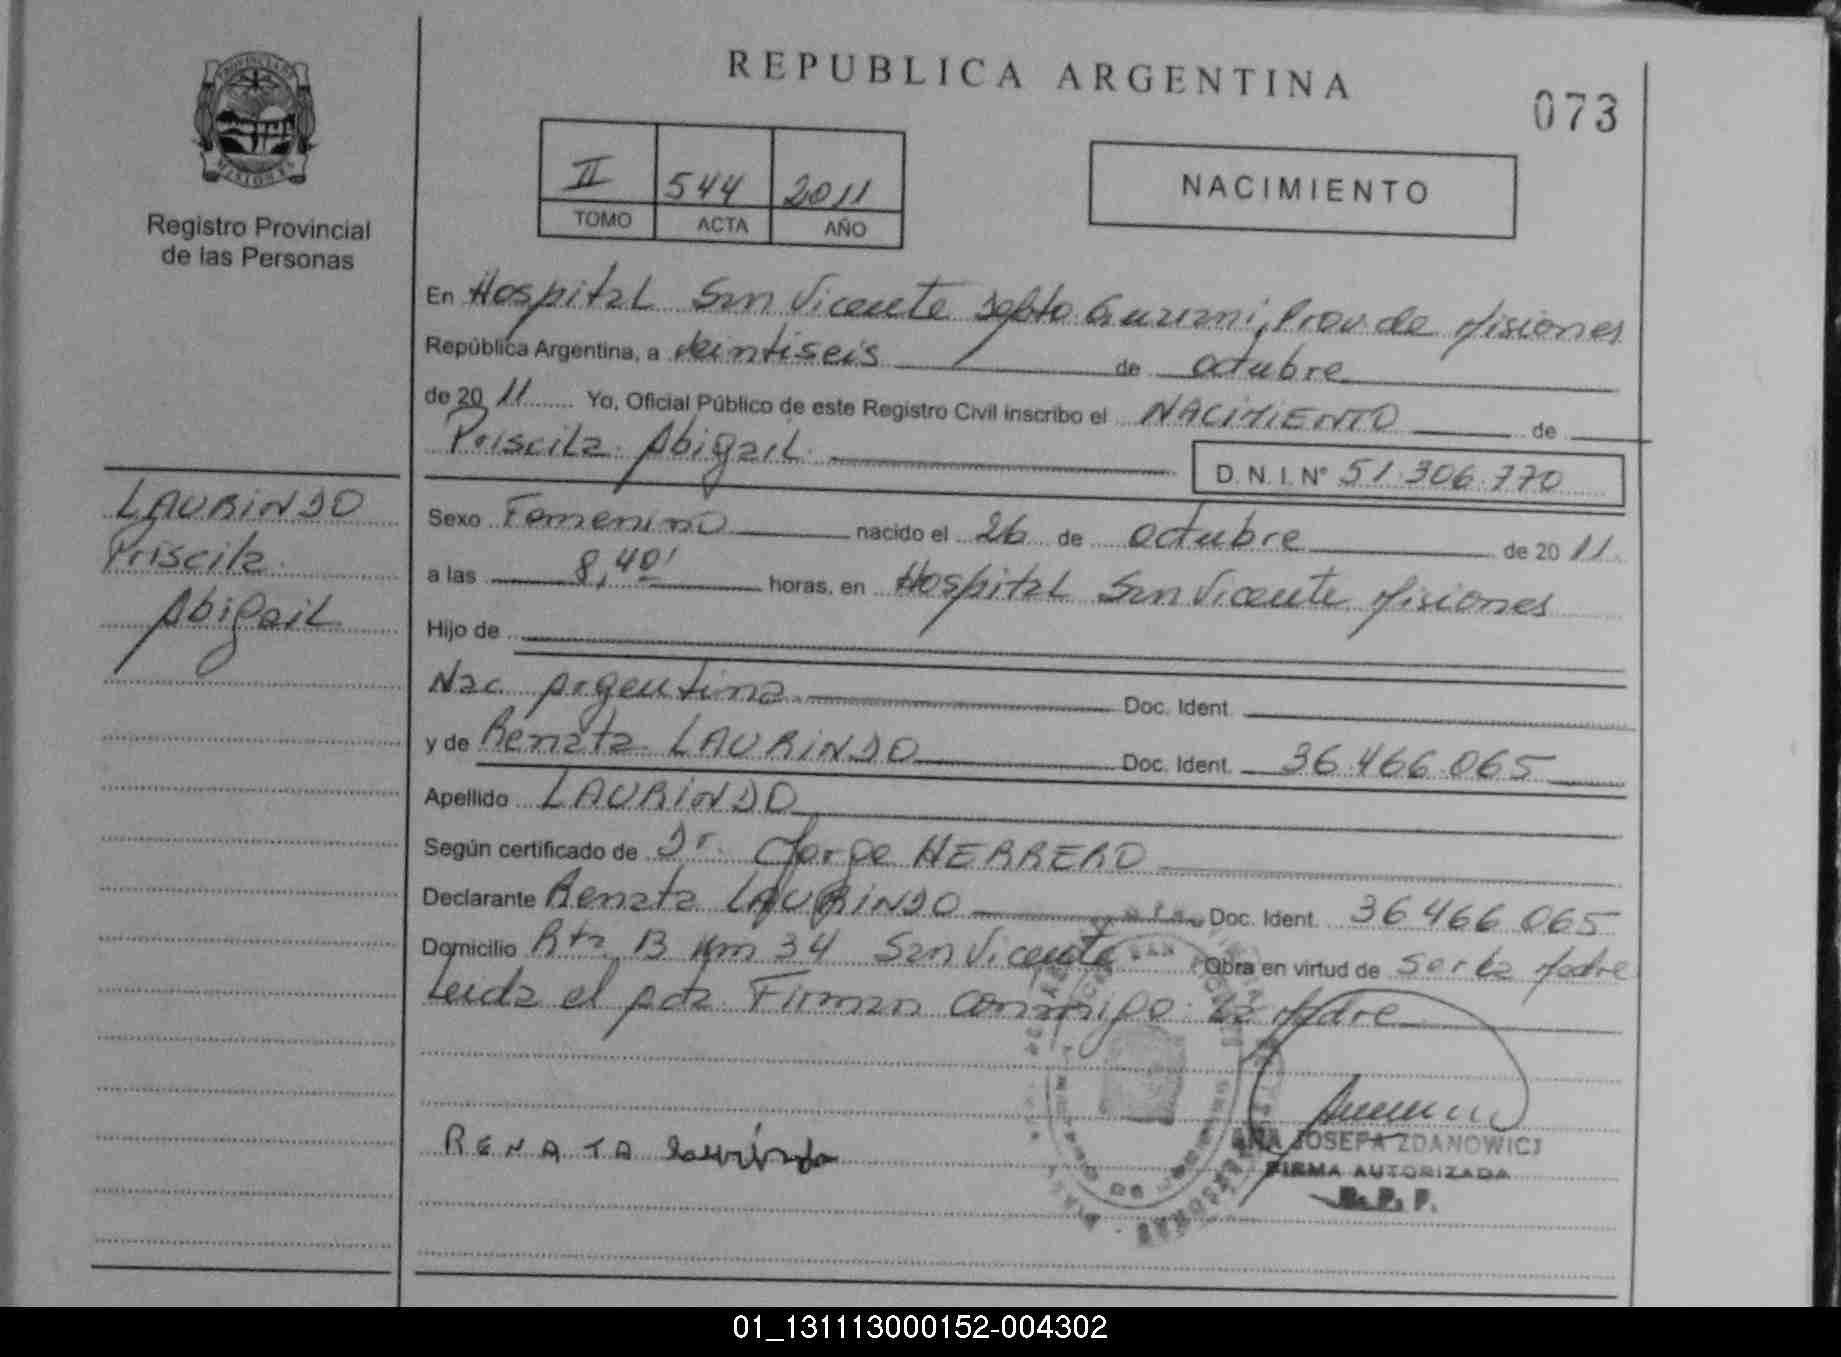 PROVINCIA DE
MISIONES
Registro Provincial
de las Personas
REPUBLICA ARGENTINA
073
II 544 2011
TOMO ACTA AÑO
NACIMIENTO
En Hospital San Vicente Depto Guarani, Prov de Misiones
República Argentina, a veintiseis de octubre
de 2011 Yo, Oficial Público de este Registro Civil inscribo el NACIMIENTO de
Priscila Abigail D. N. I. Nº 51.306.770
LAURINDO
Priscila
Abigail
Sexo Femenino nacido el 26 de octubre de 2011
a las 8,40' horas, en Hospital San Vicente Misiones
Hijo de
Nac. Argentina Doc. Ident.
y de Renata LAURINDO Doc. Ident. 36.466.065
Apellido LAURINDO
Según certificado de Dr. Jorge HERRERO
Declarante Renata LAURINDO Doc. Ident. 36466065
Domicilio Rta 13 Km 34 San Vicente Obra en virtud de Ser la Madre
Leida el Acta Firman conmigo la Madre
RENATA Laurindo
ANA JOSEFA ZDANOWICZ
FIRMA AUTORIZADA
R. P. P.
01_131113000152-004302